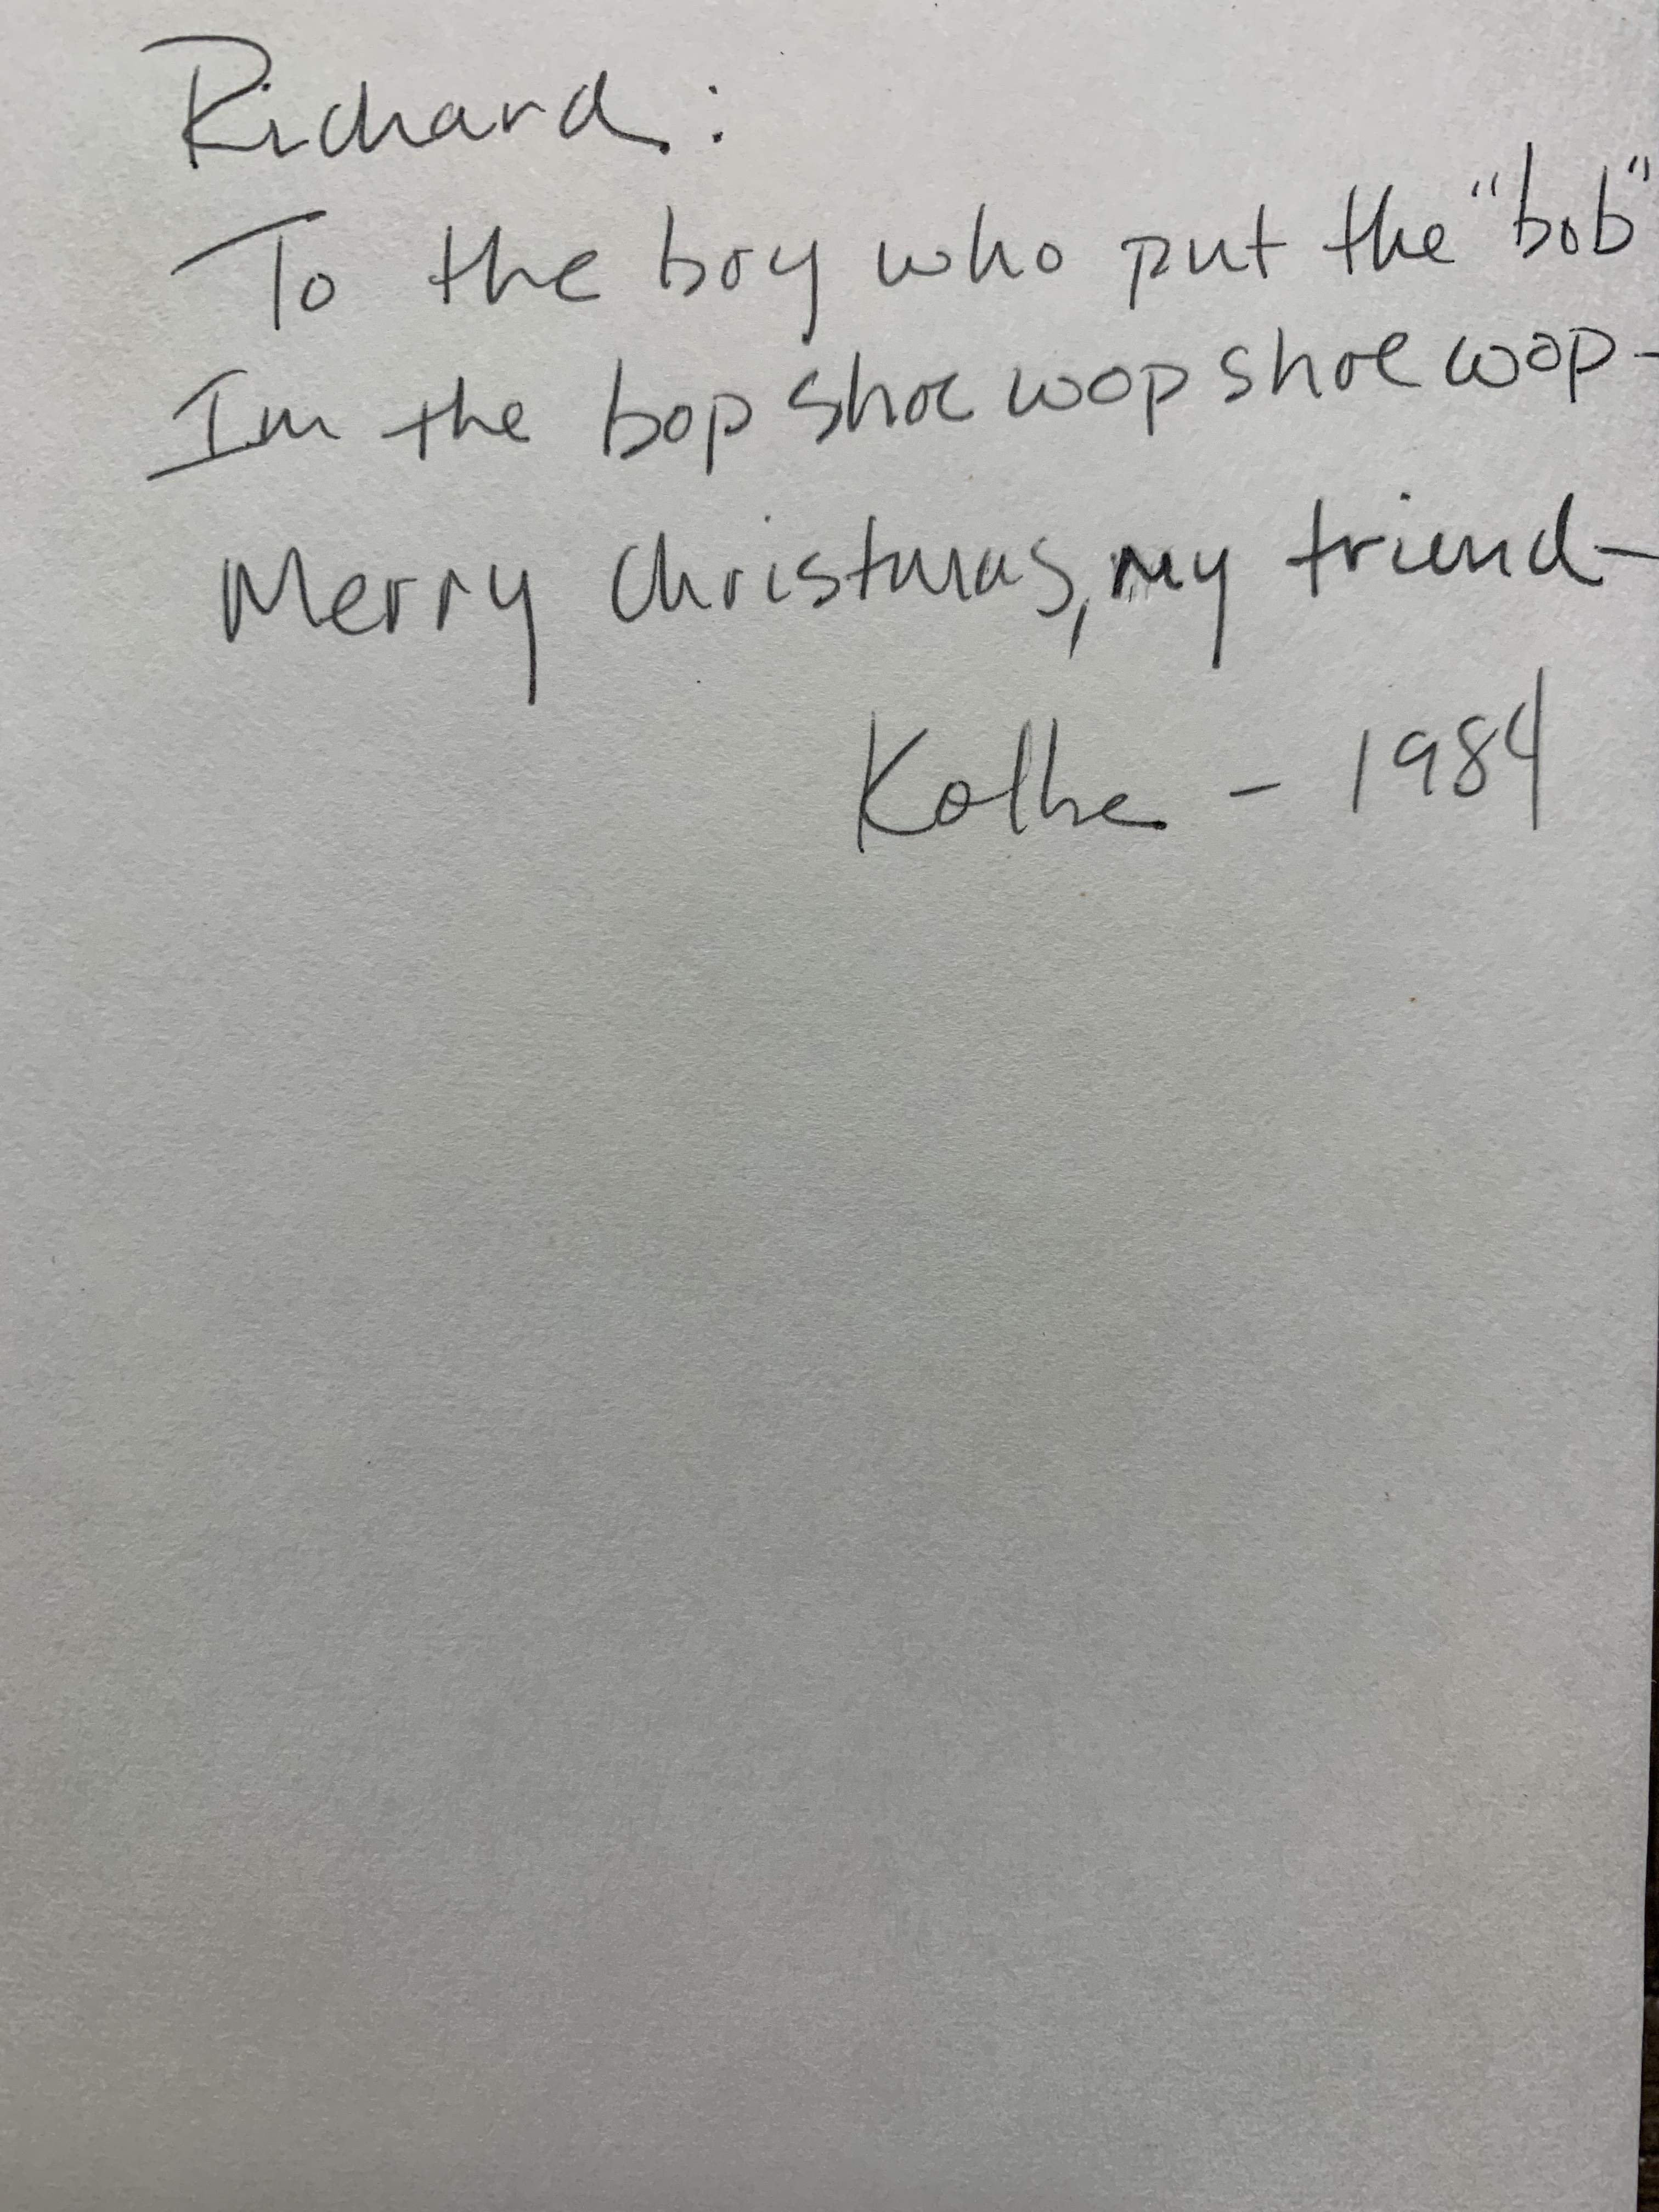 Richard:
To the boy who put the "bob"
Im the bop shoe wop shoe wop-
Merry Christmas, my friend-
- 1984